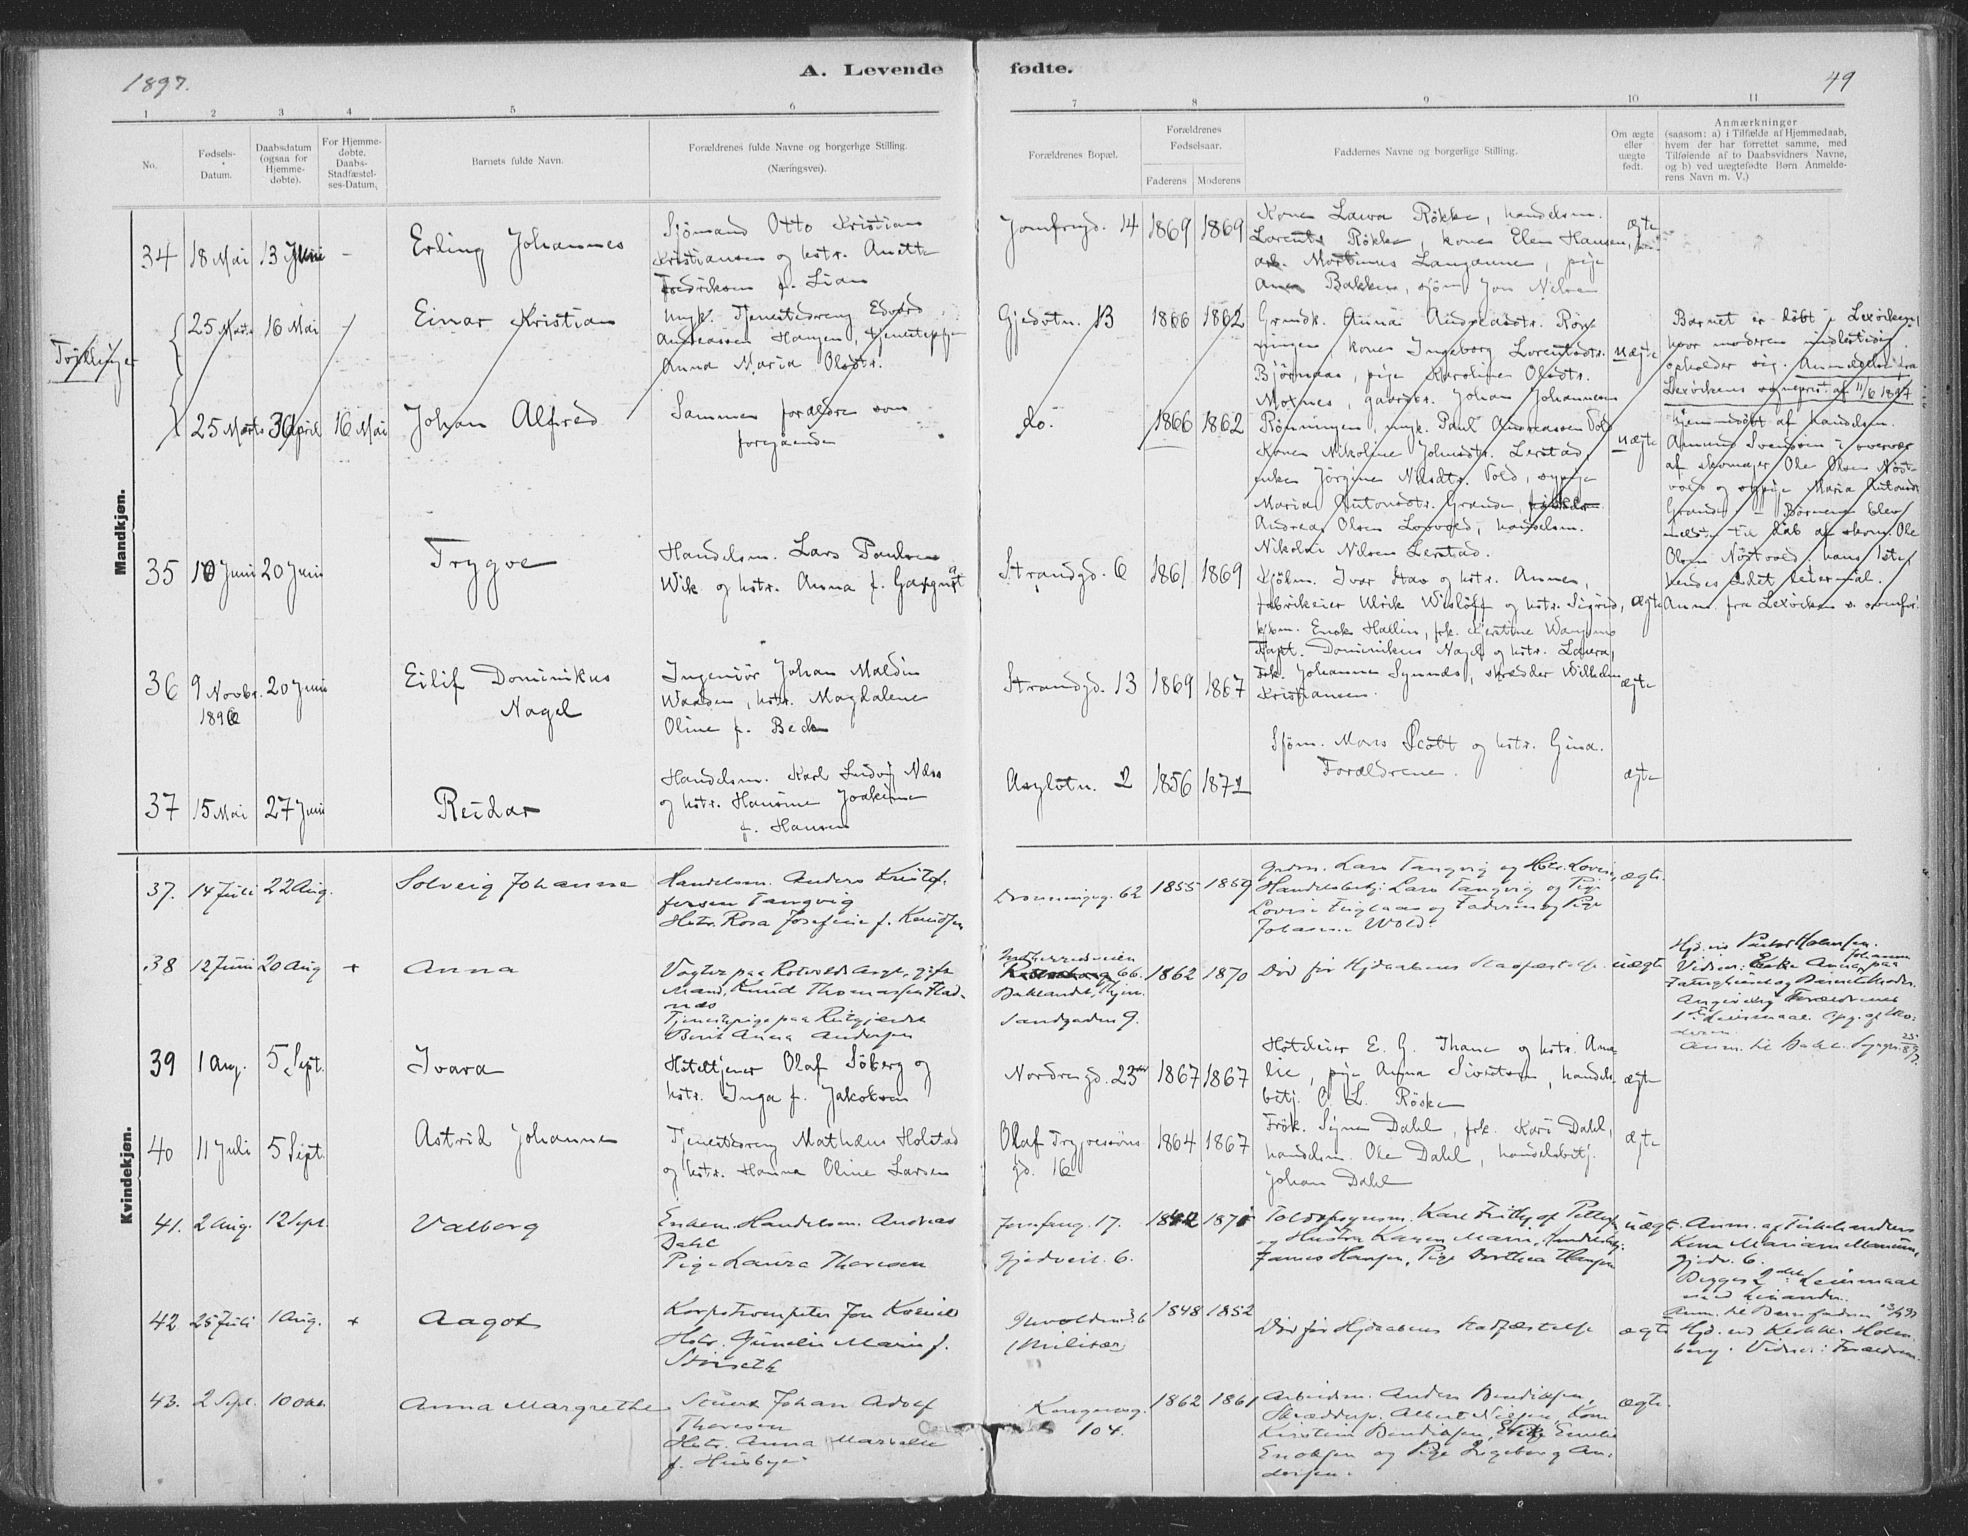 1897.
A. Levende fødte.
49
1 2 3 4 5 6 7 8 9 10 11
No.
Fødsels-Datum.
Daabsdatum (ogsaa for Hjemme-døbte).
For Hjemme-døbte, Daabs-Stadfæstel-ses-Datum,
Barnets fulde Navn.
Forældrenes fulde Navne og borgerlige Stilling.
(Næringsvei).
Forældrenes Bopæl.
Forældrenes Fødselsaar.
Faderens Moderens
Faddernes Navne og borgerlige Stilling.
Om ægte eller uægte født.
Anmærkninger
(saasom: a) i Tilfælde af Hjemmedaab,
hvem der har forrettet samme, med
Tilføiende af to Daabsvidners Navne,
og b) ved uægtefødte Børn Anmelde-
rens Navn m. V.)
Mandkjøn.
34 18 Mai 13 Juni - Erling Johannes
Sjømand Otto Kristian
Kristiansen og hstr. Anette
Fredriksen f. Lian
Jomfrugd. 14 1869 1869
Kone Laura Røkke, handelsm.
Lorents Røkke, kone Elen Hansen,
arb. Martinus Langanne, pige
Bakken, sjøm. Jon Nilsen
ægte
Tvillinger
25 Marts 16 Mai - Einar Kristian
ungk. Tjenestedreng Edvard
Andreassen Haugen, tjenestepige
Anna Maria Olsdtr.
Gjedvtn. 13 1866 1862
Grndk. Anna Andreasdtr. Røn-
ningen, kone Ingeborg Lorentsdtr.
Bjørnaas, pige Karoline Olsdtr.
Moxnes, gaardbr. Johan Johannesen
uægte
Barnet er døbt i Lexviken,
hvor moderen midlertidig
opholder sig. Anmeldelse fra
Lexvikens sogneprest af 11/6 1897
25 Marts 30 April 16 Mai Johan Alfred
Sammen forældre som
foregaaende
do. 1866 1862
Rønningen, ungk. Paul Andreassen Vold
Kone Nikoline Johnsdtr. Lerstad,
enke Jørgine Nilsdtr. Vold, sypige
Maria Antonsdtr. Grande,
Andreas Olsen Lovvold, handelsm.
Nikolai Nilsen Lerstad.
uægte
Hjemmedøbt af handelsm.
Svendsen i overvær
af skomager Ole Olsen Nøst-
vold og sypige Maria Antonsdtr
Grande. - Børnene blev
meldt til daab af skom. Ole
Olsen Nøstvold, hans 1ste
hendes 2det leiermaal.
Anm. fra Lexviken s. ovenfor.
35 10 Juni 20 Juni Trygve
Handelsm. Lars Paulsen
Wik og hstr. Anna f.
Strandgd. 6 1861 1869
Kjøbm. Ivar Stav og hstr. Anna,
fabrikeier Ulrik Wisløff og hstr. Sigrid,
kjbm. Enok Hallin, frk. Kjerstine
ægte
36 9 Novbr. 1896 20 Juni Eilif Dominikus
Nagel
Ingeniør Johan Maldin
Waasen, hstr. Magdalene
Oline f. Beck
Strandgd. 13 1869 1867
Kapt. Dominikus Nagel og hstr. Laura,
Frk. Johanne Synnes, skrædder Wilhelm
Kristiansen.
ægte
37 15 Mai 27 Juni Reidar
Handelsm. Karl Ludvig Næss
og hstr. Hansine Joakime
f. Hansen
Asylvtn. 2 1856 1872
Sjøm. Mons Scott og hstr. Gina.
Forældrene.
ægte
Kvindekjøn.
37. 14 Juli 22 Aug. Solveig Johanne
Handelsm. Anders Kristof-
fersen Tangvig
Hstr. Rosa Josefine f. Knudsen
Dronningsg. 62 1855 1859
Grdm. Lars Tangvig og Hstr. Lovise,
Handelsbetj. Lars Tangvig og Pige
Lovise og Faderen og Pige
Johanne Wold.
ægte.
38 12 Juni 20 Aug + Anna
Vogter paa Rotvold Asyl, gift
Mand, Knud Thomassen Flad-
næs
Tjenestepige paa Reitgjerdet
Berit Anna Andersen
Innherredsveien
66.
Baklandet, Hjem:
Sandgaden 9.
1862 1870
Død før Hjdaabens Stadfæstelse
uægte
Hjd. ved Pastor Holmsen.
Vidner: Enke Anna Johansen paa
Fattighuset og Barnets Moder.
Angivelig Forældrenes
1ste Leiermaal. Opg. af Mo-
deren.
Anm. til Bakl. Sognepr. 25/8 97.
39 1 Aug. 5 Sept. Ivara
Hoteltjener Olaf Søberg og
hstr. Inga f. Jakobsen
Nordregd. 23 1867 1867
Hoteleier E. G. Thane og hstr. Ama-
lie, pige Anna Sivertsen, handels-
betj. O. L. Røske
ægte
40 11 Juli 5 Sept. Astrid Johanne
Tjenestedreng Mathæus Holstad
og hstr. Hanna Oline Larsen
Olaf Trygvesøns
gd. 16
1864 1867
Frøk. Signe Dahl, frk. Kari Dahl,
handelsm. Ole Dahl, handelsbetj.
Johan Dahl
ægte
41. 2 Aug. 12 Sept. Valborg
Enkem. Handelsm. Andreas
Dahl
Pige Laura Thoresen
Jomfrug. 17.
Gjedveit. 6.
1842 1871
Toldopsynsm. Karl Fritjof Pettersen
og Hustru Karen Marie, Handelsbetj.
James Hansen, Pige Dorthea Hansen
uægt.
Anm. af Fiskehandlers
Kone Mariane
Gjedv. 6.
Begges 2det Leiermaal
med hinanden.
Anm. til Barnefaderen 13/9 97
42 25 Juli 1 Aug. + Aagot
Korpstrompeter Jon
Hstr. Gunelie Marie f.
Stinseth
(Militær)
1848 1852
Død før Hjdaabens Stadfæstelse
ægte
Hjd. ved Klokker Holm-
berg. Vidner: Forældrene.
43. 2 Sept. 10 Okt. Anna Margrethe
Stuert Johan Adolf
Thoresen
Hstr. Anna
f. Husbye
Kongensg.
104.
1862 1861
Arbeidsm. Anders Bendiksen,
Skræddersv. Albert Nilsen, Kone
Kirstine Bendiksen, Enke Emelie
Enoksen og Pige Ingeborg An-
dersen.
ægte.